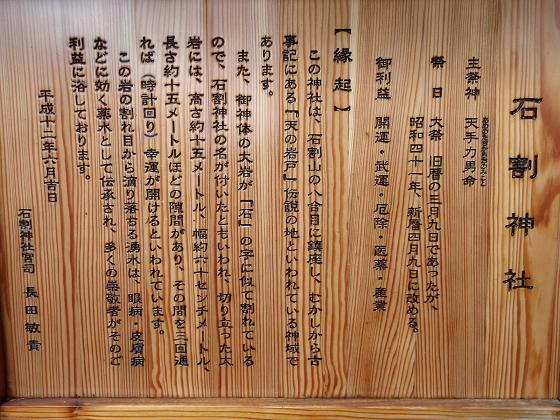 石割神社
主祭神　天手力男命
祭日　大祭　旧暦の三月九日であったが、
昭和四十一年、新暦四月九日に改める。
御利益　開運・武運・厄除・医薬・産業
【縁起】
この神社は、石割山の八合目に鎮座し、むかしから古
事記にある「天の岩戸」伝説の地といわれている神域で
あります。
また、御神体の大岩が「石」の字に似て割れている
ので、石割神社の名が付いたともいわれ、切り立った大
岩には、高さ約十五メートル、幅約六十センチメートル、
長さ約十五メートルほどの隙間があり、その間を三回通
れば（時計回り）幸運が開けるといわれています。
この岩の割れ目から滴り落ちる湧水は、眼病・皮膚病
などに効く薬水として伝承され、多くの崇敬者がそのご
利益に浴しております。
平成十二年六月吉日
石割神社宮司　長田敏貴